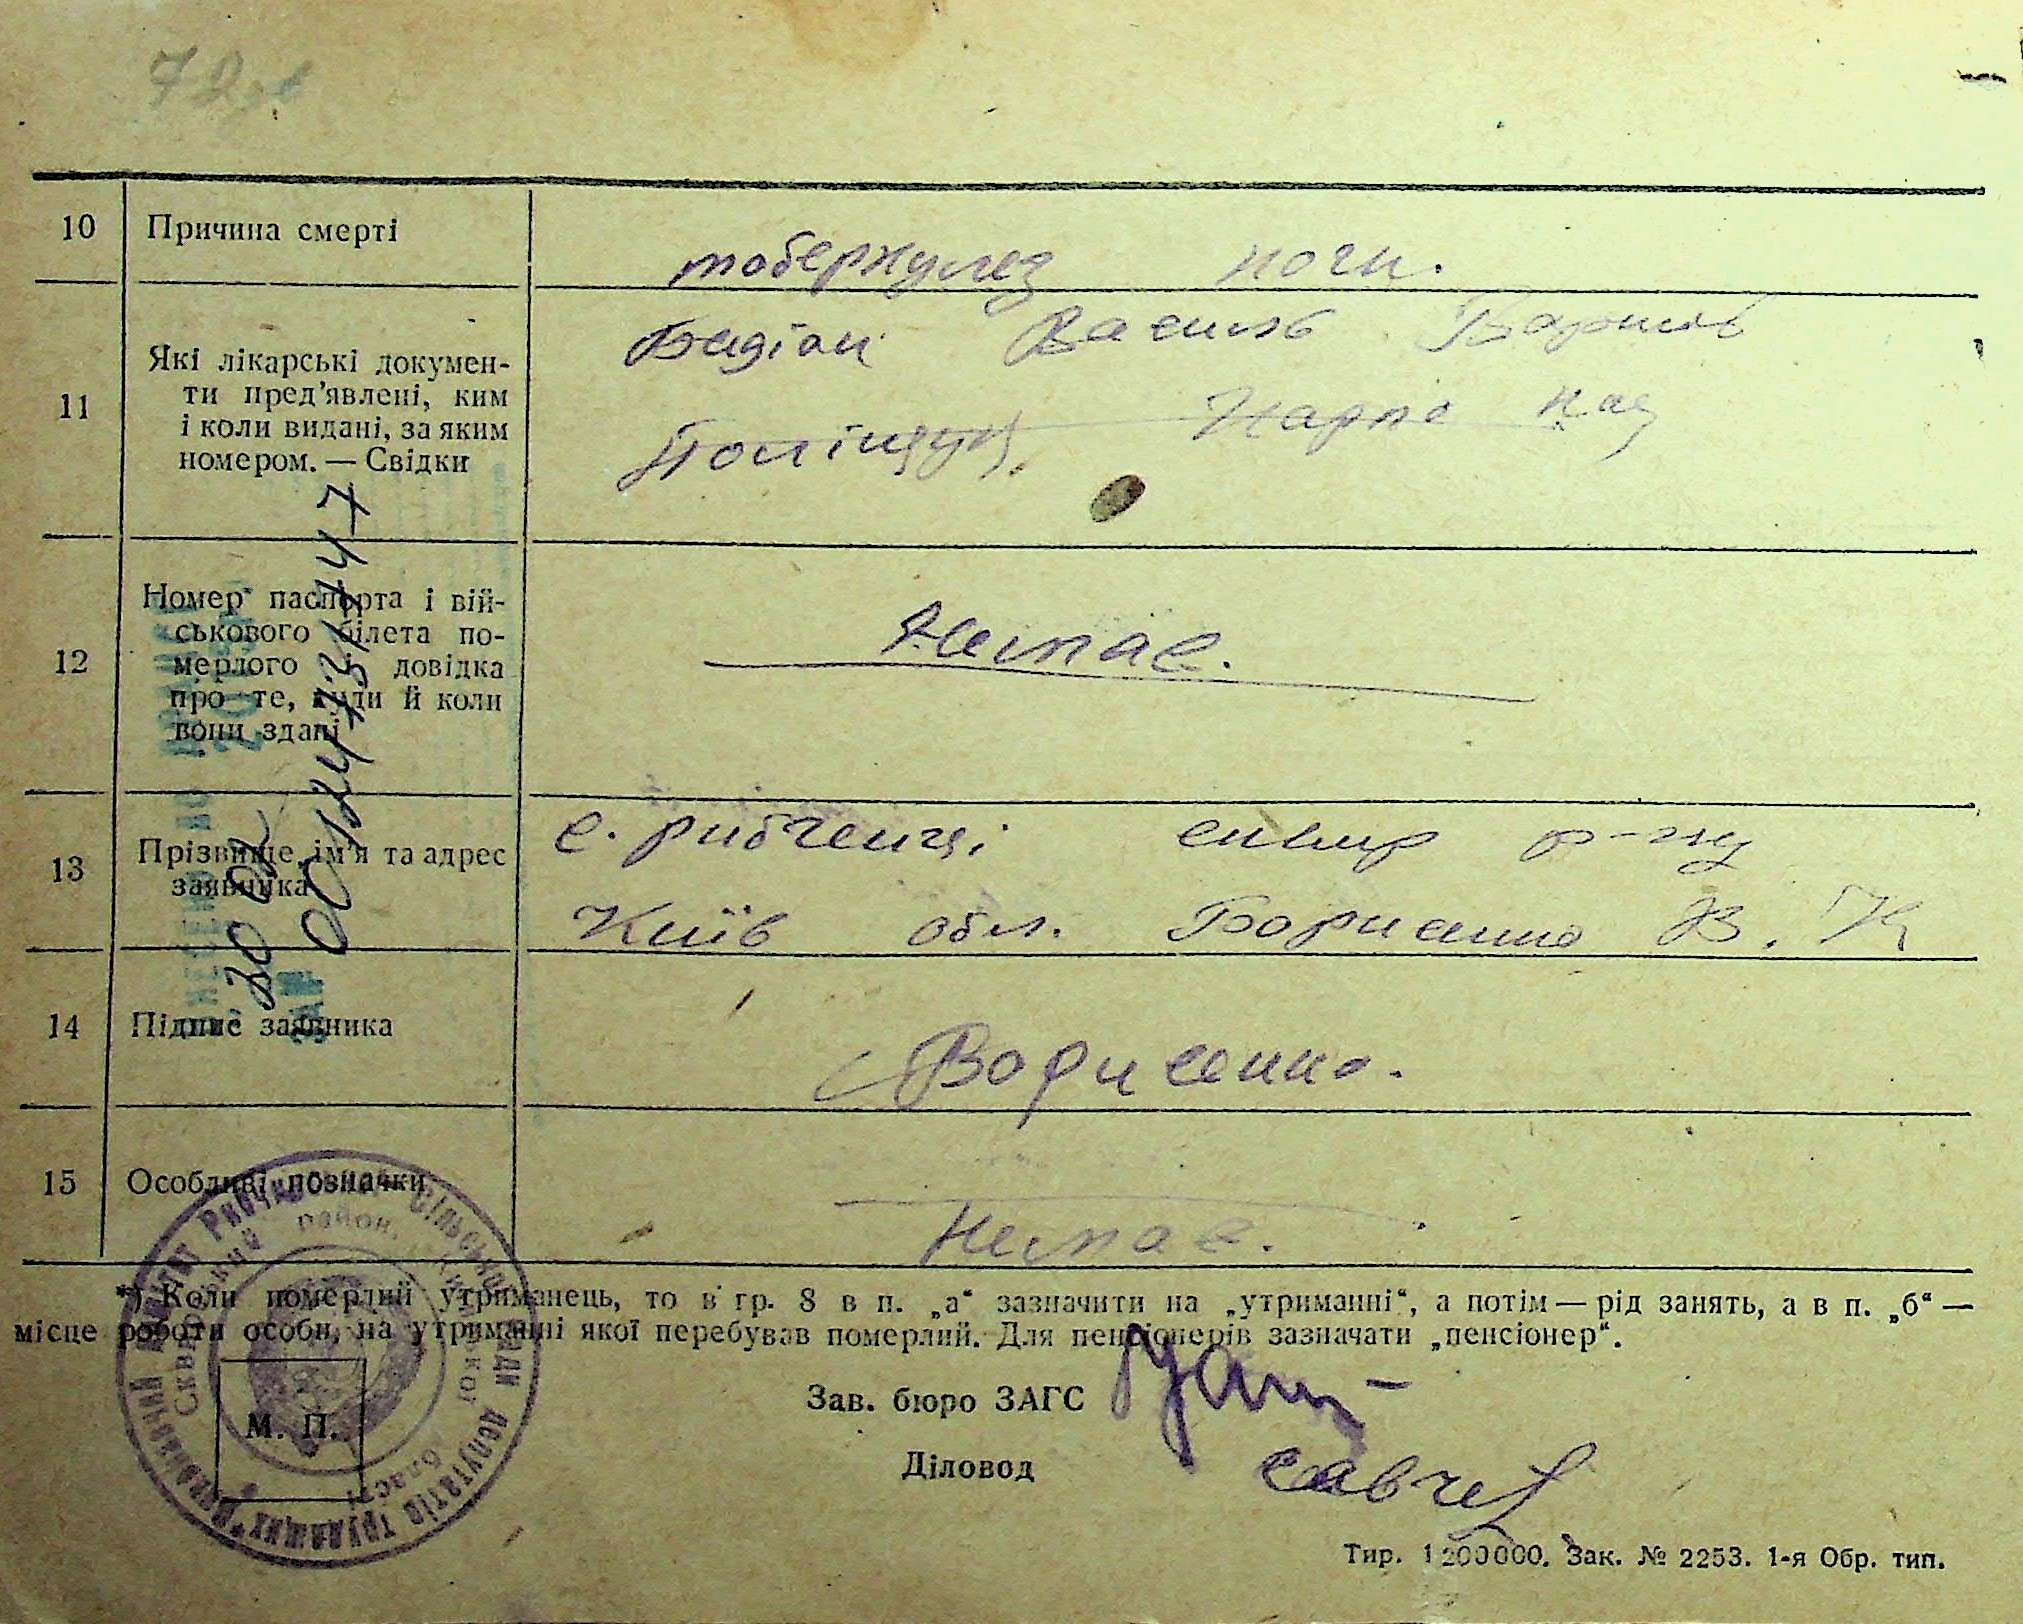 72
10 Причина смерті
тоберкулез ноги.
11 Які лікарські докумен-
ти пред’явлені, ким
і коли видані, за яким
номером. — Свідки
Василь
Поліщук
12 Номер паспорта і вій-
ськового білета по-
мерлого і довідка
про те, куди й коли
вони здані
Немає.
13 Прізвище, ім’я та адрес
заявника
с. рибченці сквир р-ну
Київ обл. Борисенко В. К
14 Підпис заявника
Борисенко.
15 Особливі позначки
Немає.
00124731747
*) Коли померлий утриманець, то в гр. 8 в п. „а“ зазначити на „утриманні“, а потім — рід занять, а в п. „б“ —
місце роботи особи, на утриманні якої перебував померлий. Для пенсіонерів зазначати „пенсіонер“.
Зав. бюро ЗАГС
Діловод
М. П.
Сільської Ради депутатів трудящих
Сквирський район, Київської області
Тир. 1200000. Зак. № 2253. 1-я Обр. тип.